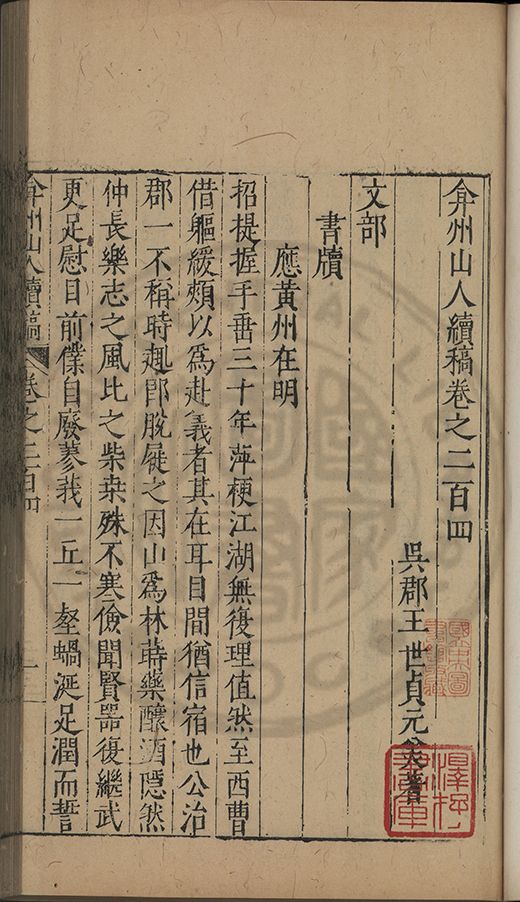 弇州山人續稿卷之二百四
吳郡王世貞元美著
文部
書牘
應黃州在明
招提握手垂三十年萍梗江湖無復理值然至西曹
借軀緩頰以為赴義者其在耳目間猶信宿也公治
郡一不稱時趣即脫屣之因山為林蒔藥釀酒隱然
仲長樂志之風比之柴桑殊不寒儉聞賢器復繼武
更足慰目前僕自廢蓼莪一丘一壑蝸涎足潤而誓
弇州山人續稿
卷之二百四
一
國立中央圖書館